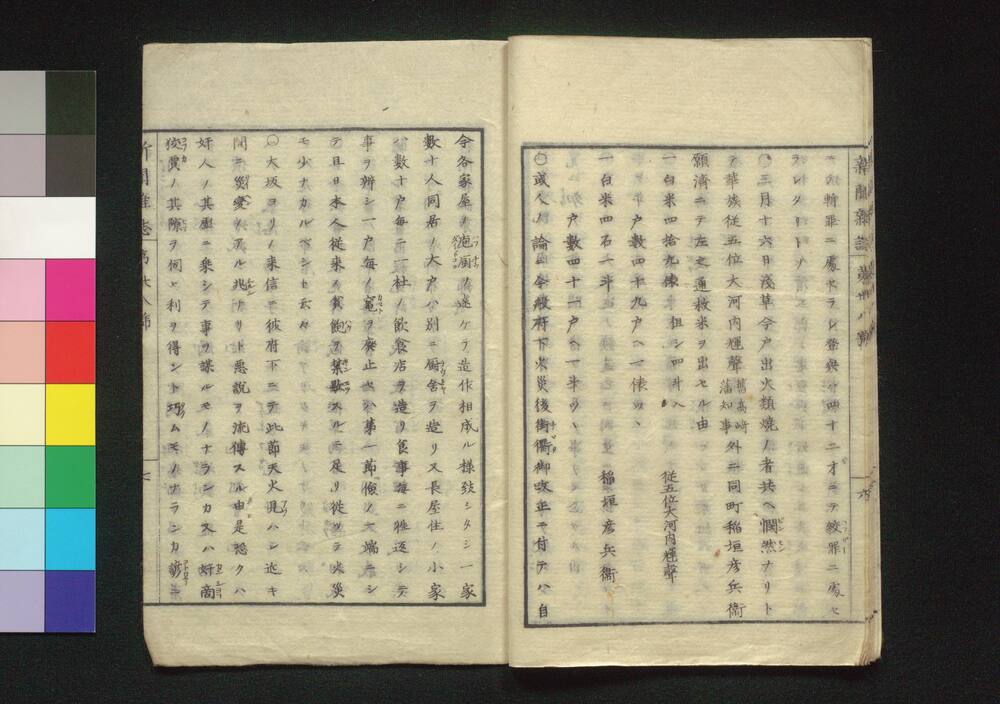 ニ斬罪ニ處セラレ當央ハ四十二才ニテ絞罪ニ處セ
ラレタリトソ
〇三月十六日浅草今戸出火類焼ノ者共ヘ憫然ナリト
テ華族従五位大河内輝聲舊高崎藩知事外ニ同町稲垣彦兵衛
願済ニテ左之通救米ヲ出セル由
一白米四拾九俵 但シ四斗入 従五位大河内輝聲
戸数四十九戸ヘ一俵ツヽ
一白米四石一斗 稲垣彦兵衛
戸数四十一戸ヘ一斗ツヽ
〇或人ノ論ニ今般府下火災後街衢御改正ニ付テハ自
今各家屋ノ庖厨ノ遂ケラ造作相成ル様致シタシ一家
数十人同居ノ大戸ハ別ニ厨舎ヲ造リ又長屋住ノ小家
ハ数十戸毎ニ一社ノ飲食店ヲ造リ食事毎ニ往返シテ
事ヲ辨シ一戸毎ノ竈ヲ廃止セハ第一節倹ノ大端ニシ
テ且日本人従来ノ貪飽ヲ禁シ
モ少ナカルベシト云々
〇大坂ヨリノ来信ニ彼府下ニテ此節天火現ハシ近キ
間ニ災變ノアル兆ナリト悪説ヲ流傳スル由是恐クハ
奸人ノ其虚ニ乗シテ事ヲ謀ルモノナランカ又ハ奸商
狡賈ノ其隙ヲ伺ヒ利ヲ得ント巧ムモノナランカ諺ニ
新聞雑誌 第卅八号
六
新聞雑誌 第卅八号
七